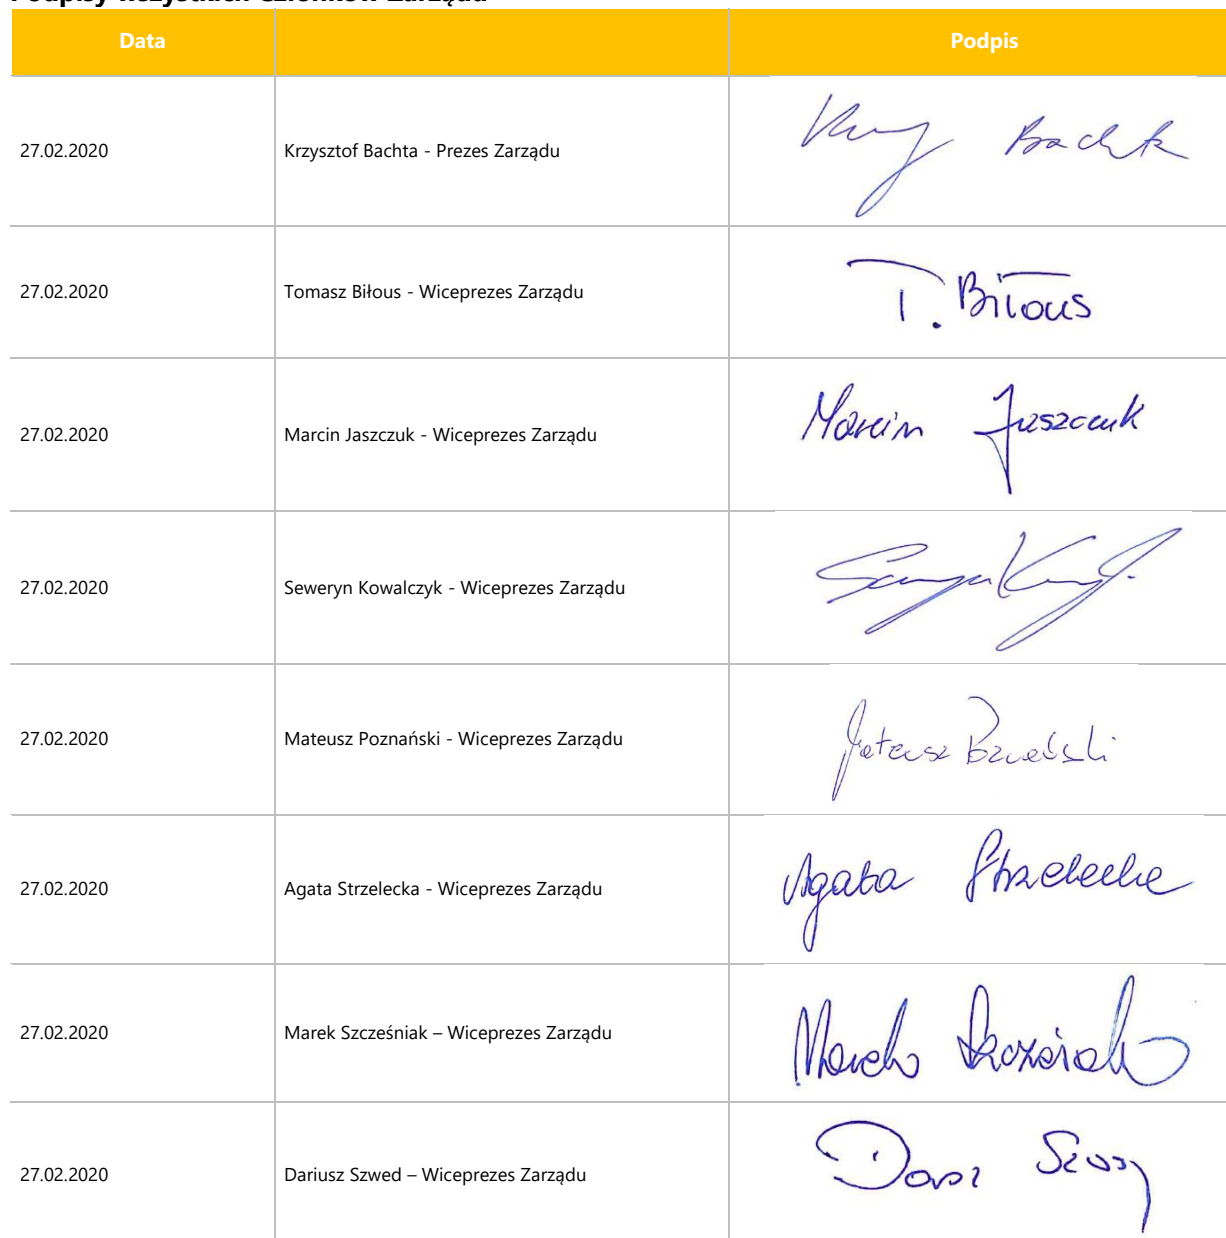 Podpisy wszystkich Członków Zarządu
Data Podpis
27.02.2020 Krzysztof Bachta - Prezes Zarządu
27.02.2020 Tomasz Biłous - Wiceprezes Zarządu T. Biłous
27.02.2020 Marcin Jaszczuk - Wiceprezes Zarządu Marcin Jaszczuk
27.02.2020 Seweryn Kowalczyk - Wiceprezes Zarządu
27.02.2020 Mateusz Poznański - Wiceprezes Zarządu Mateusz
27.02.2020 Agata Strzelecka - Wiceprezes Zarządu Agata Strzelecka
27.02.2020 Marek Szcześniak – Wiceprezes Zarządu Marek
27.02.2020 Dariusz Szwed – Wiceprezes Zarządu